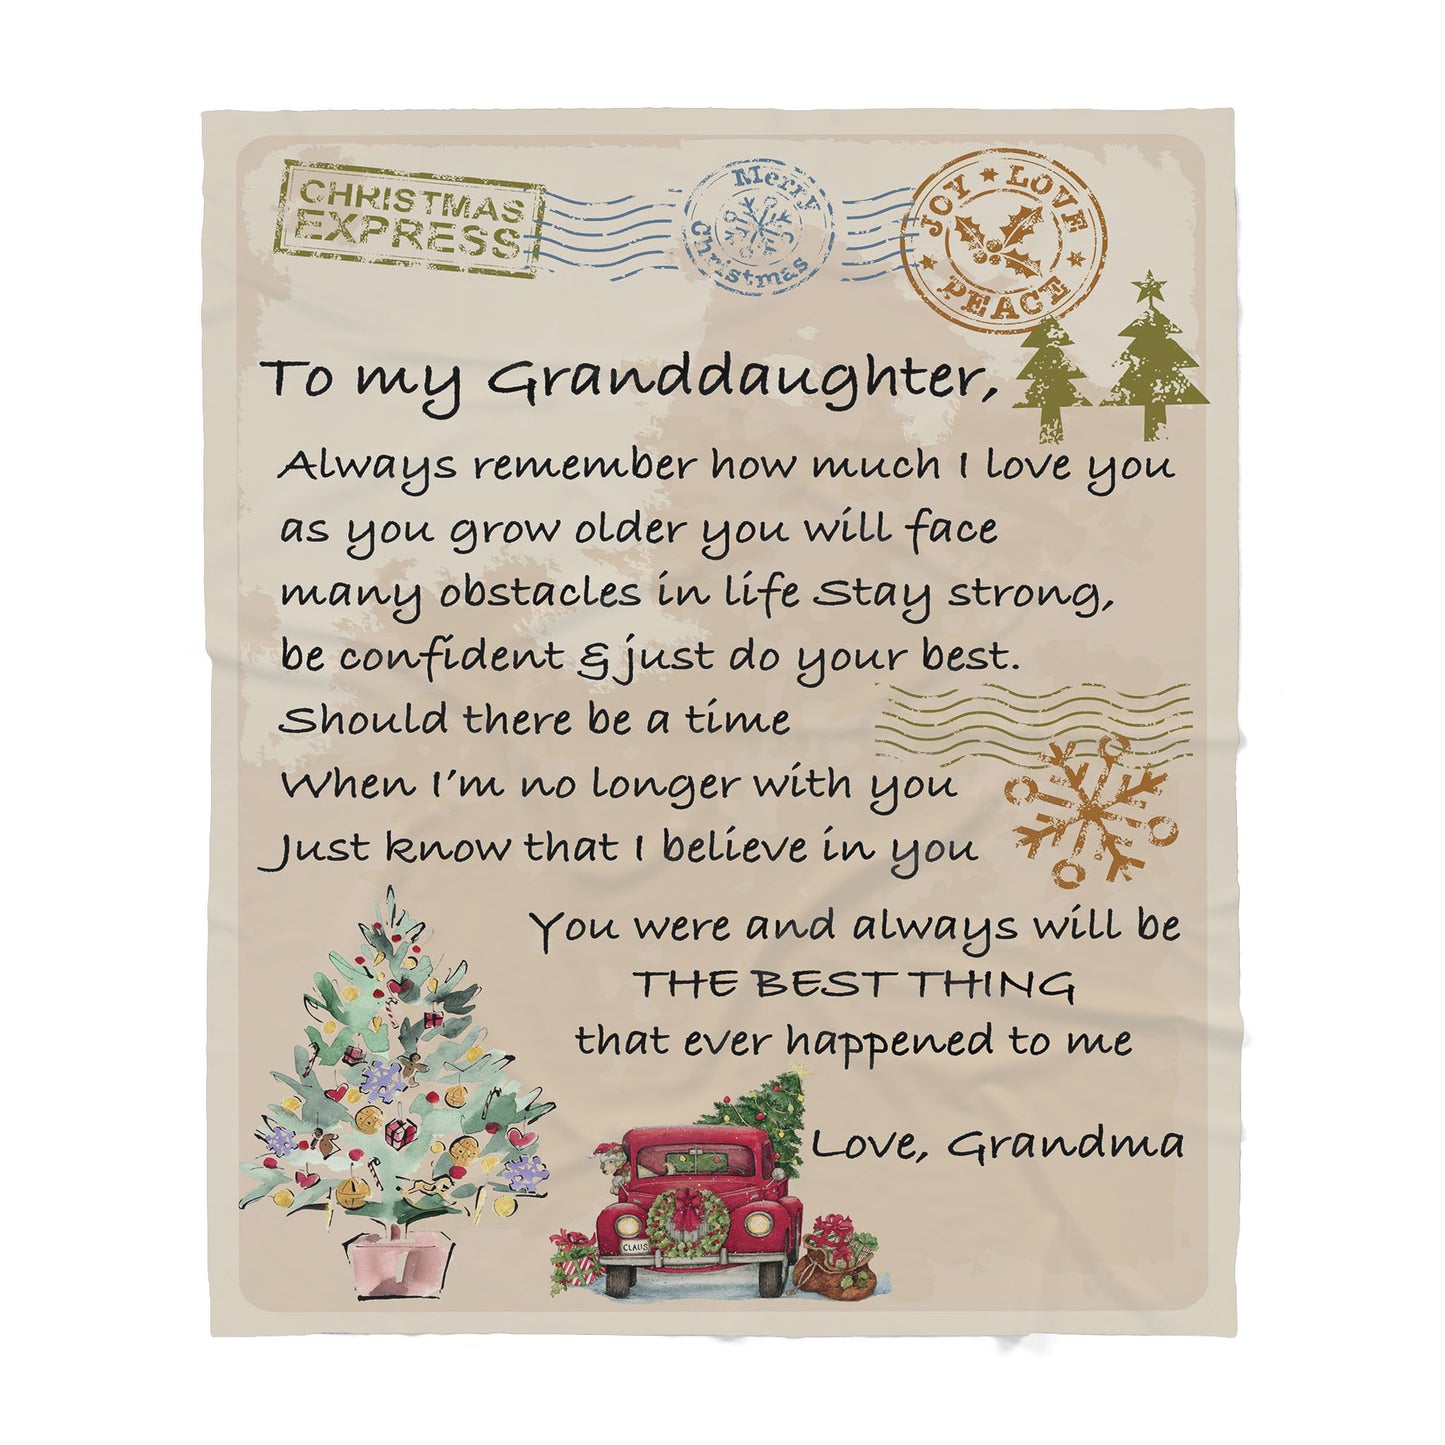 CHRISTMAS
EXPRESS
Merry
Christmas
JOY ★ LOVE
★ PEACE ★
To my Granddaughter,
Always remember how much I love you
as you grow older you will face
many obstacles in life Stay strong,
be confident & just do your best.
Should there be a time
When I'm no longer with you
Just know that I believe in you
You were and always will be
THE BEST THING
that ever happened to me
Love, Grandma
CLAUS